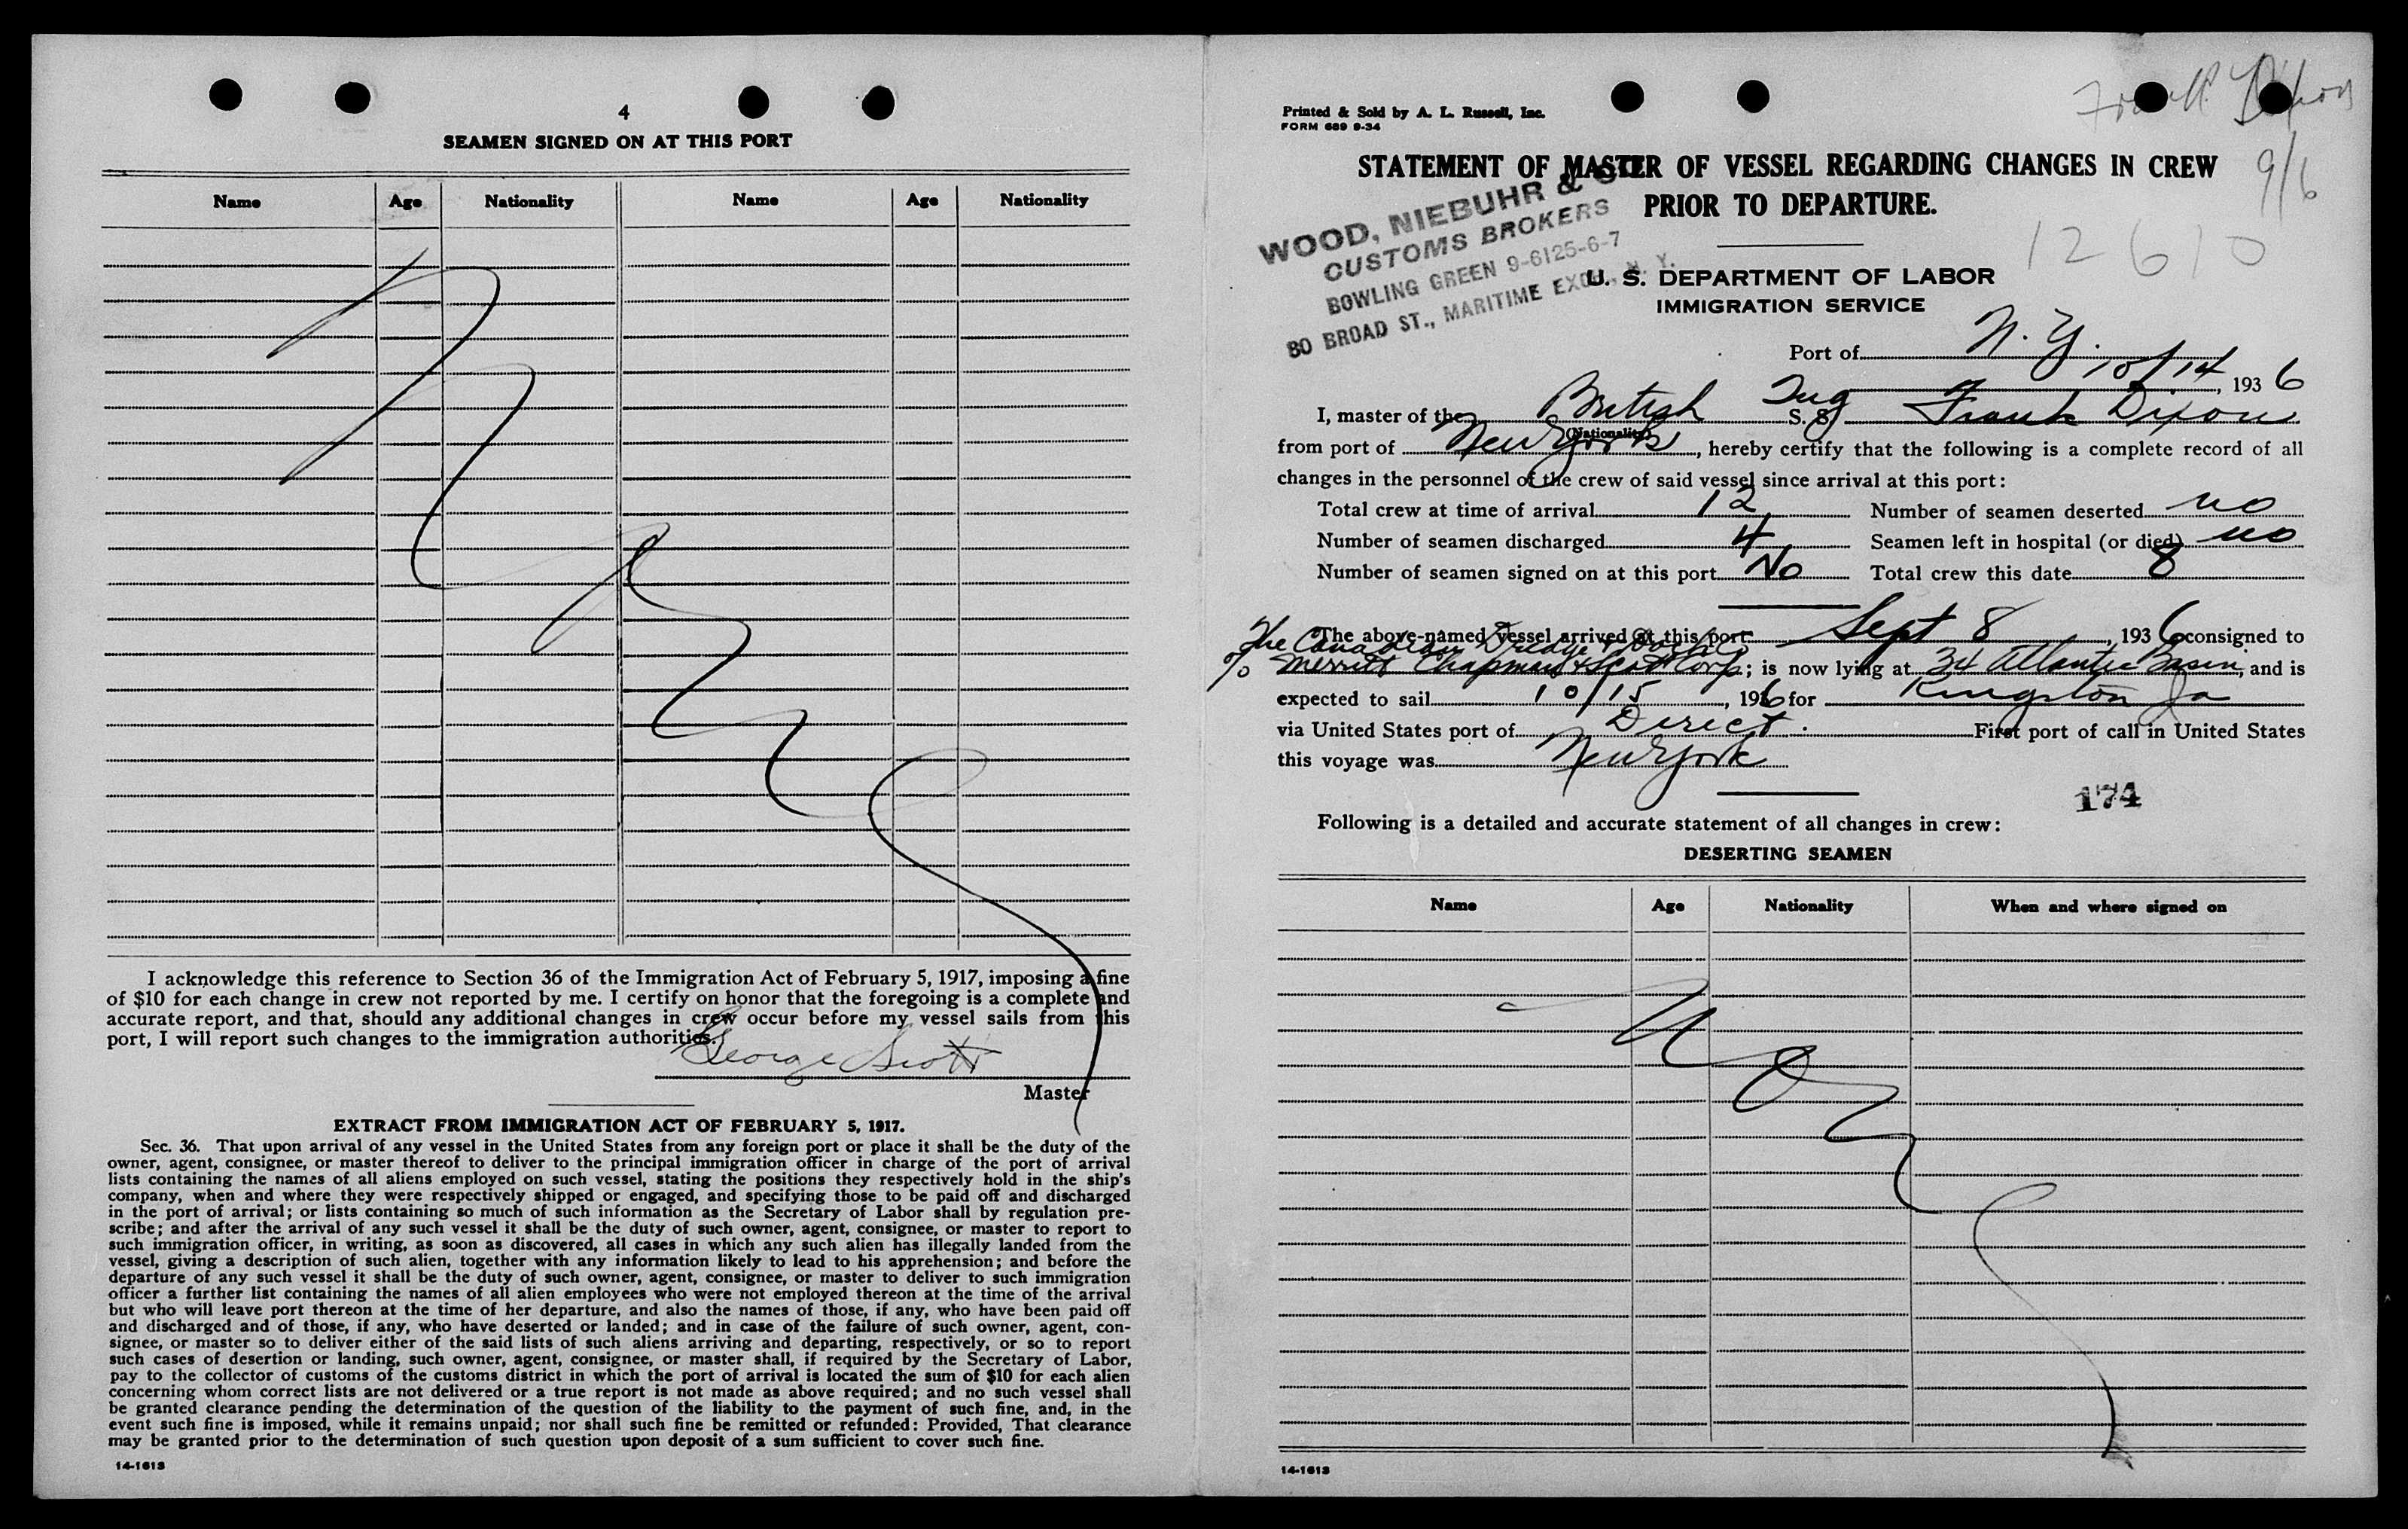 4
SEAMEN SIGNED ON AT THIS PORT
Name Age Nationality Name Age Nationality
None
I acknowledge this reference to Section 36 of the Immigration Act of February 5, 1917, imposing a fine
of $10 for each change in crew not reported by me. I certify on honor that the foregoing is a complete and
accurate report, and that, should any additional changes in crew occur before my vessel sails from this
port, I will report such changes to the immigration authorities.
George Scott
Master
EXTRACT FROM IMMIGRATION ACT OF FEBRUARY 5, 1917.
Sec. 36. That upon arrival of any vessel in the United States from any foreign port or place it shall be the duty of the
owner, agent, consignee, or master thereof to deliver to the principal immigration officer in charge of the port of arrival
lists containing the names of all aliens employed on such vessel, stating the positions they respectively hold in the ship's
company, when and where they were respectively shipped or engaged, and specifying those to be paid off and discharged
in the port of arrival; or lists containing so much of such information as the Secretary of Labor shall by regulation pre-
scribe; and after the arrival of any such vessel it shall be the duty of such owner, agent, consignee, or master to report to
such immigration officer, in writing, as soon as discovered, all cases in which any such alien has illegally landed from the
vessel, giving a description of such alien, together with any information likely to lead to his apprehension; and before the
departure of any such vessel it shall be the duty of such owner, agent, consignee, or master to deliver to such immigration
officer a further list containing the names of all alien employees who were not employed thereon at the time of the arrival
but who will leave port thereon at the time of her departure, and also the names of those, if any, who have been paid off
and discharged and of those, if any, who have deserted or landed; and in case of the failure of such owner, agent, con-
signee, or master so to deliver either of the said lists of such aliens arriving and departing, respectively, or so to report
such cases of desertion or landing, such owner, agent, consignee, or master shall, if required by the Secretary of Labor,
pay to the collector of customs of the customs district in which the port of arrival is located the sum of $10 for each alien
concerning whom correct lists are not delivered or a true report is not made as above required; and no such vessel shall
be granted clearance pending the determination of the question of the liability to the payment of such fine, and, in the
event such fine is imposed, while it remains unpaid; nor shall such fine be remitted or refunded: Provided, That clearance
may be granted prior to the determination of such question upon deposit of a sum sufficient to cover such fine.
14-1613
Printed & Sold by A. L. Russell, Inc.
FORM 689 9-34
Frank Dixon
9/6
12610
STATEMENT OF MASTER OF VESSEL REGARDING CHANGES IN CREW
PRIOR TO DEPARTURE.
WOOD, NIEBUHR & CO.
CUSTOMS BROKERS
BOWLING GREEN 9-6125-6-7
80 BROAD ST., MARITIME EXCH., N. Y.
U. S. DEPARTMENT OF LABOR
IMMIGRATION SERVICE
Port of N. Y.
10/14, 1936
I, master of the British Tug S. S. Frank Dixon
(Nationality)
from port of New York, hereby certify that the following is a complete record of all
changes in the personnel of the crew of said vessel since arrival at this port:
Total crew at time of arrival 12 Number of seamen deserted no
Number of seamen discharged 4 Seamen left in hospital (or died) no
Number of seamen signed on at this port No Total crew this date 8
The above-named vessel arrived at this port Sept 8, 1936 consigned to
The Canadian Dredge & Dock Co
c/o Merritt Chapman & Scott Corp; is now lying at 34 Atlantic Basin, and is
expected to sail 10/15, 1936 for Kingston Ja
via United States port of Direct. First port of call in United States
this voyage was New York
174
Following is a detailed and accurate statement of all changes in crew:
DESERTING SEAMEN
Name Age Nationality When and where signed on
None
14-1613